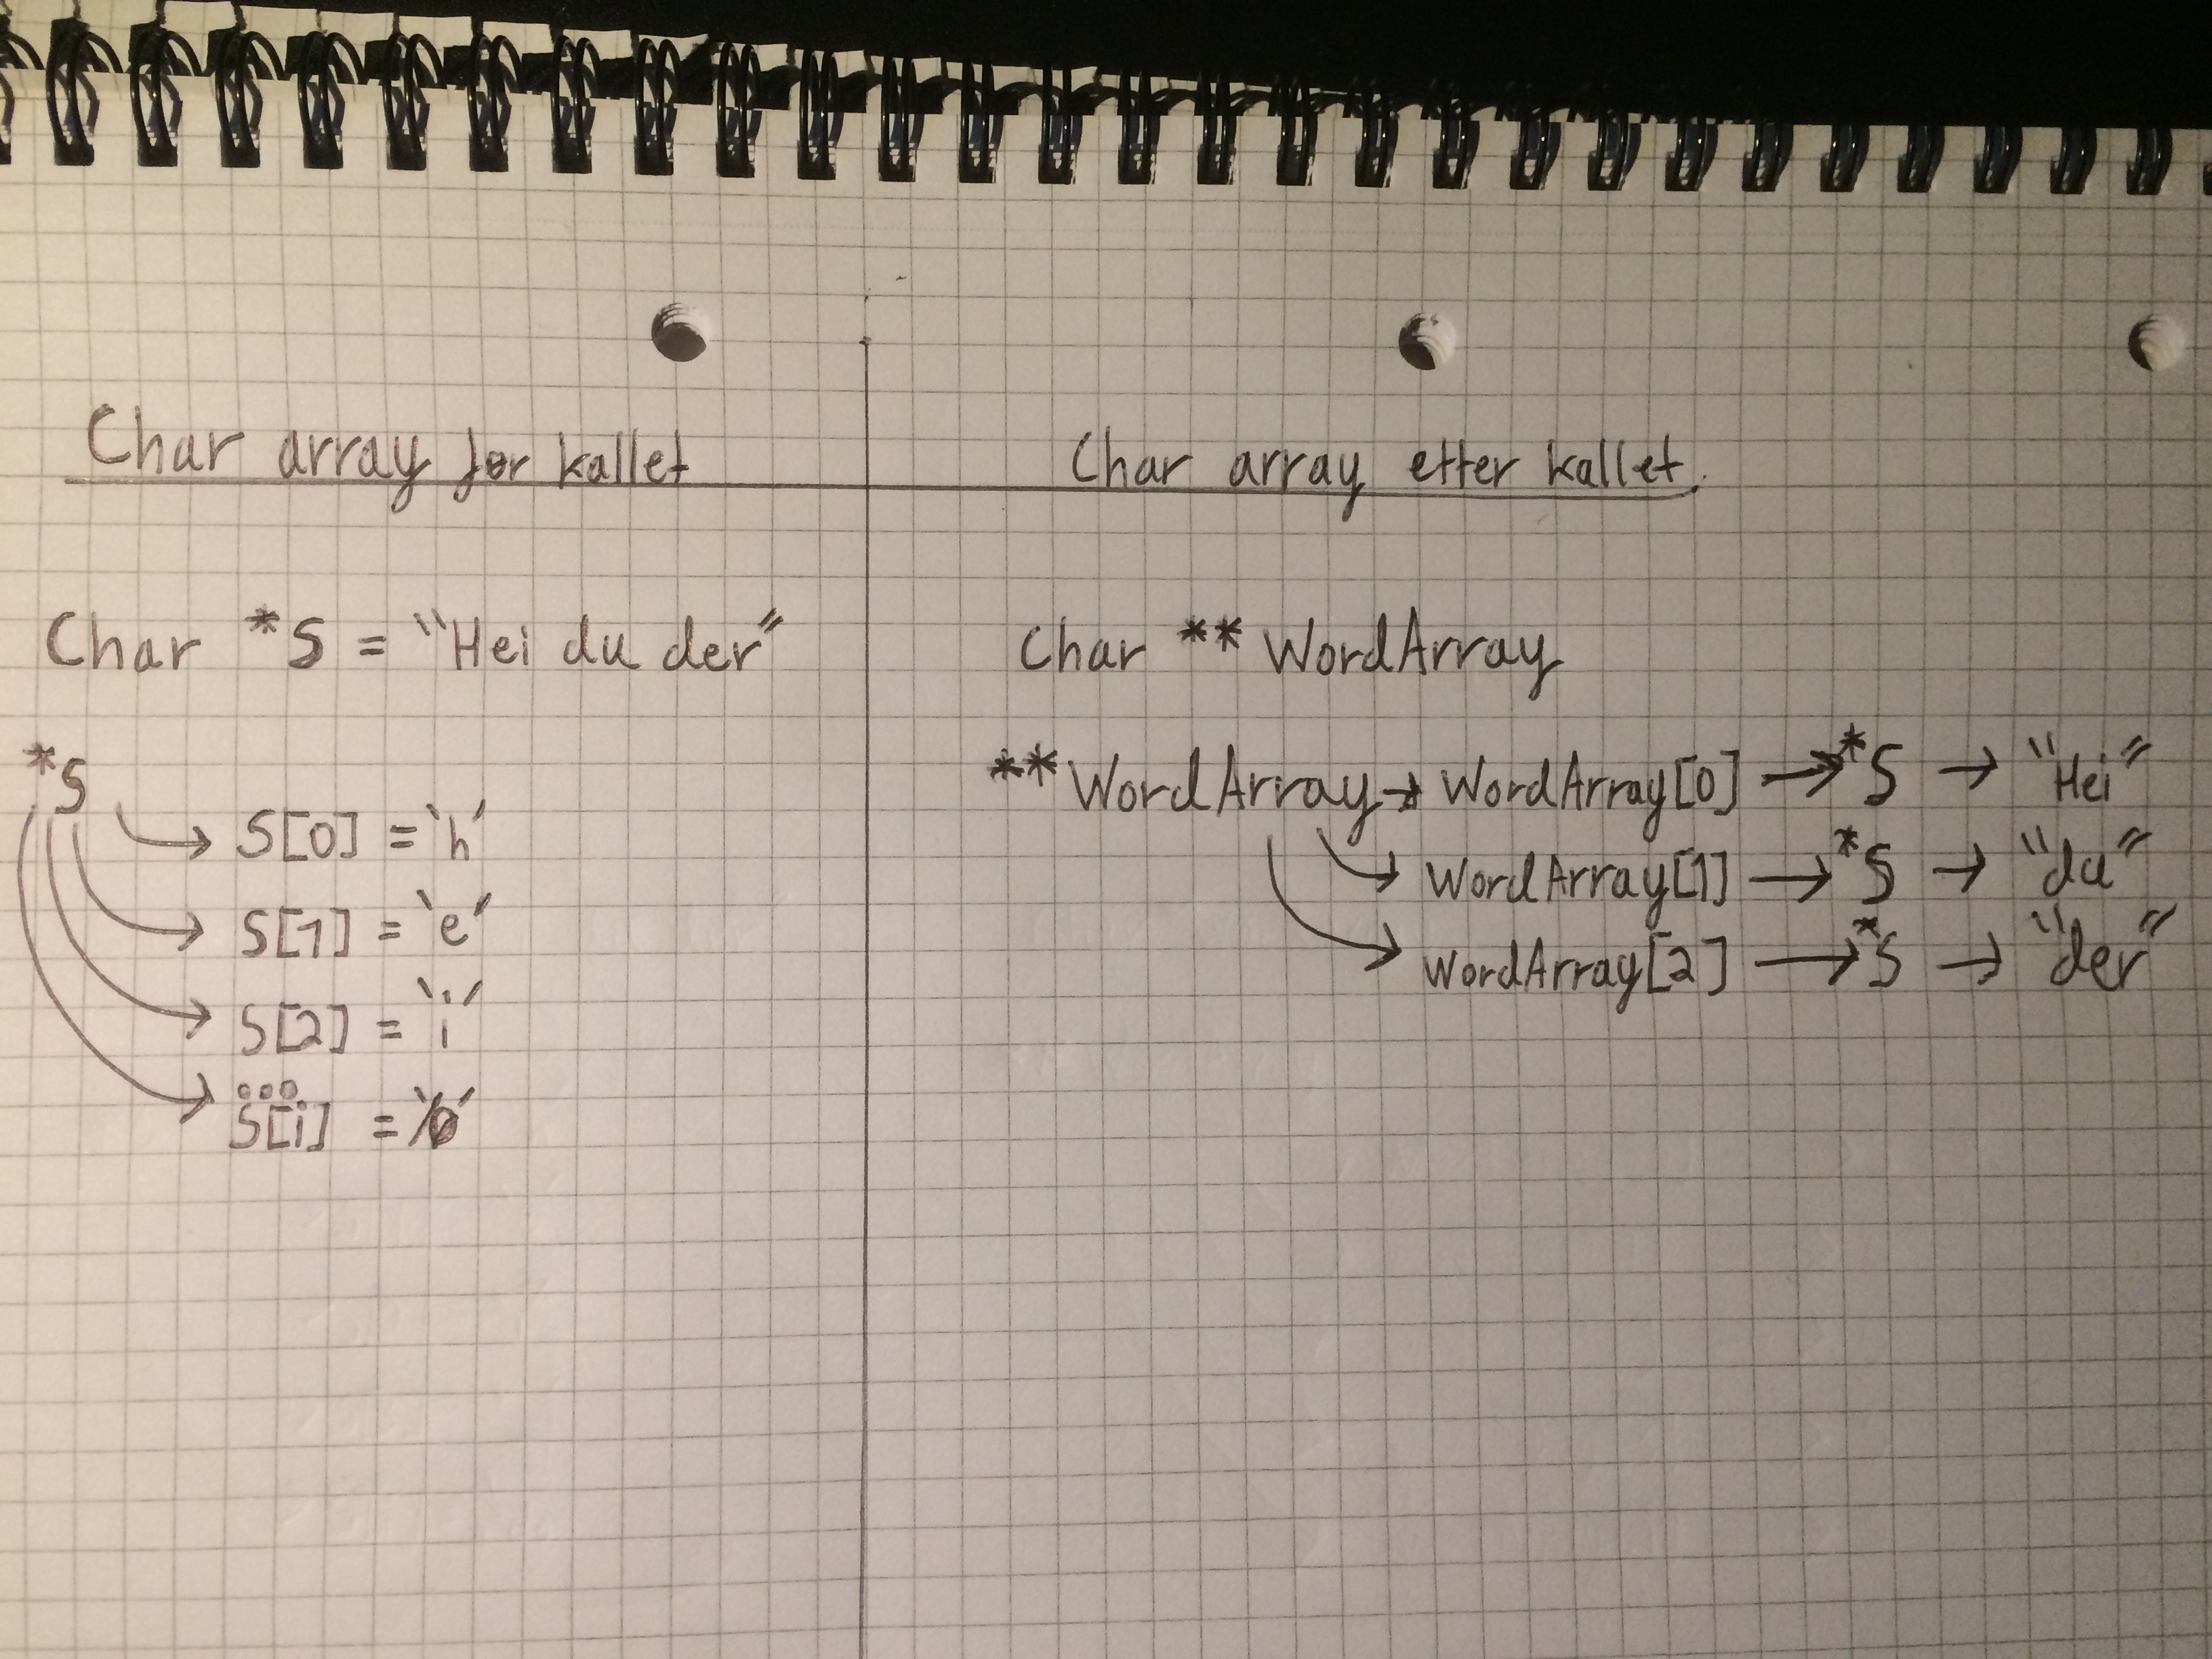 Char array før kallet
Char *S = "Hei du der"
*S
S[0] = 'h'
S[1] = 'e'
S[2] = 'i'
...
S[i] =
Char array etter kallet.
Char ** WordArray
**WordArray → WordArray[0] → *S → "Hei"
WordArray[1] → *S → "du"
WordArray[2] → *S → "der"